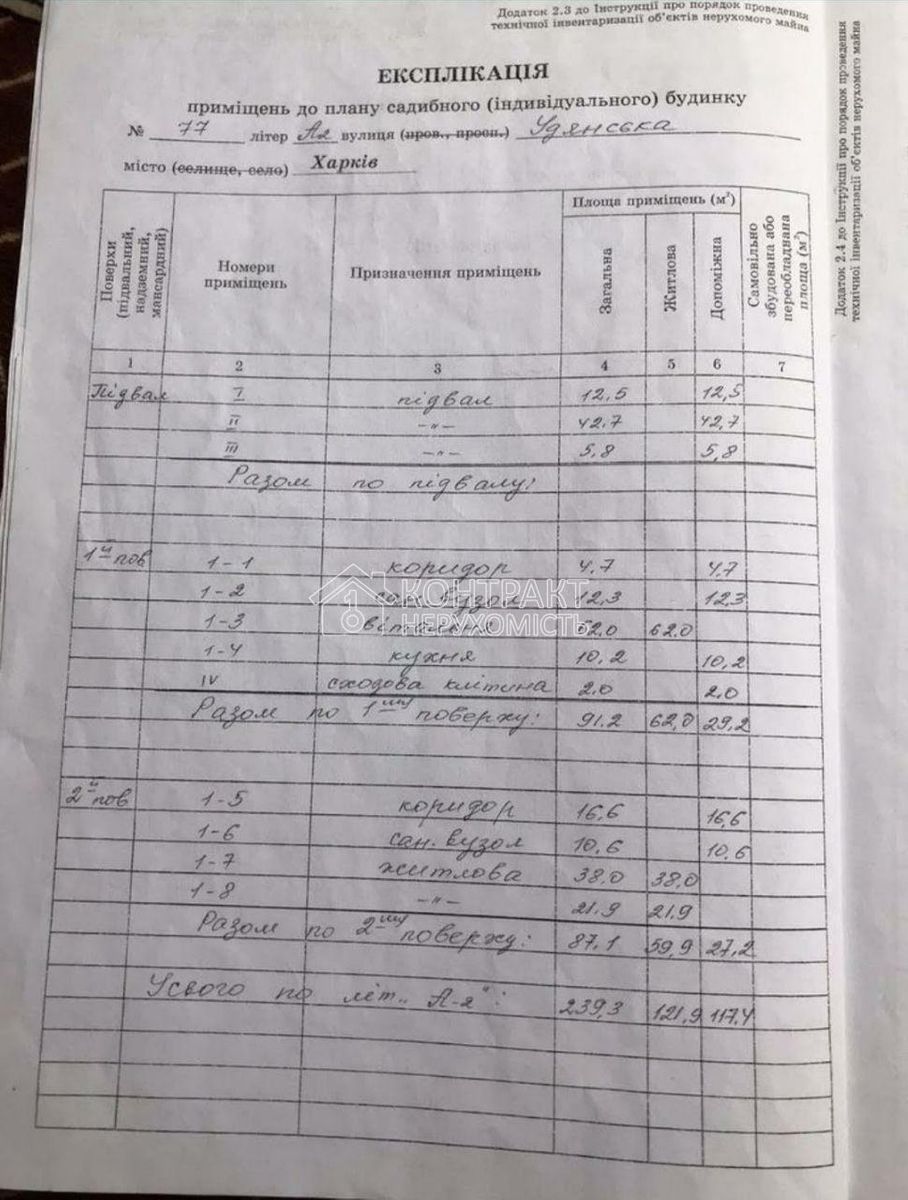 Додаток 2.3 до Інструкції про порядок проведення
технічної інвентаризації об'єктів нерухомого майна
ЕКСПЛІКАЦІЯ
приміщень до плану садибного (індивідуального) будинку
№ 77 літер А2 вулиця (пров., просп.) Удянська
місто (селище, село) Харків
Поверхи (підвальний, надземний, мансардний) Номери приміщень Призначення приміщень Площа приміщень (м²) Загальна Житлова Допоміжна Самовільно збудована або переобладнана площа (м²)
1 2 3 4 5 6 7
Підвал I підвал 12,5 12,5
II –"– 42,7 42,7
III –"– 5,8 5,8
Разом по підвалу:
1й пов 1-1 коридор 4,7 4,7
1-2 сан. вузол 12,3 12,3
1-3 вітальня 62,0 62,0
1-4 кухня 10,2 10,2
IV сходова клітина 2,0 2,0
Разом по 1му поверху: 91,2 62,0 29,2
2й пов 1-5 коридор 16,6 16,6
1-6 сан. вузол 10,6 10,6
1-7 житлова 38,0 38,0
1-8 –"– 21,9 21,9
Разом по 2му поверху: 87,1 59,9 27,2
Усвого по літ „А-2": 239,3 121,9 117,4
КОНТРАКТ
НЕРУХОМІСТЬ
Додаток 2.4 до Інструкції про порядок проведення
технічної інвентаризації об'єктів нерухомого майна